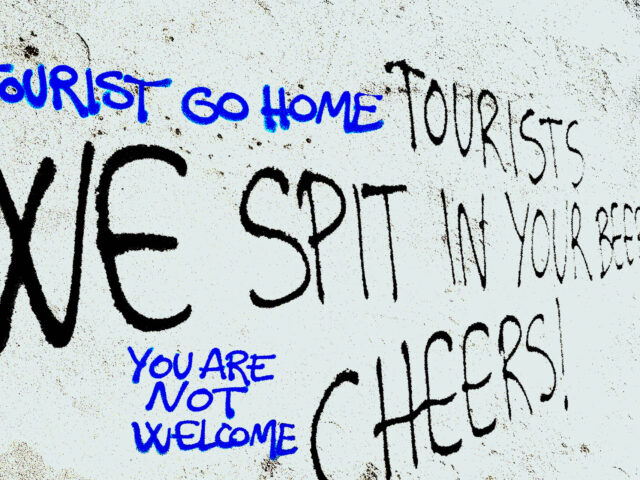 TOURIST GO HOME
TOURISTS
WE SPIT IN YOUR BEER
CHEERS!
YOU ARE
NOT
WELCOME